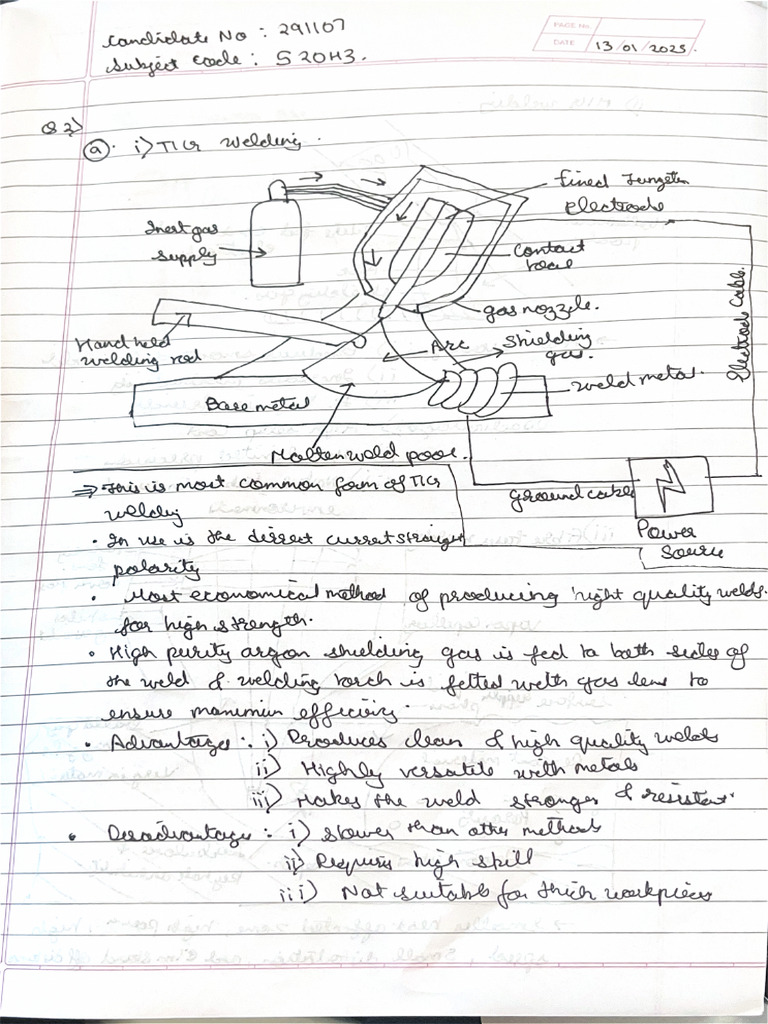 Candidate No : 291107
Subject code : S20H3.
PAGE No.
DATE 13/01/2025.
Q2)
(a). i) TIG Welding.
Fixed Tungsten
electrode
Inert gas
supply
Contact
gas nozzle.
Electrode Cable
Hand held
welding rod
Arc
Shielding
gas.
weld metal.
Base metal
Molten weld pool.
ground cable
Power
Source
⇒ This is most common form of TIG
welding
• In use is the direct current straight
polarity
• Most economical method of producing hight quality welds.
for high strength.
• High purity argon shielding gas is fed to both sides of
the weld & welding torch is fitted with gas lens to
ensure
• Advantages : i) Produces clean & high quality welds
ii) Highly versatile with metals
iii) Makes the weld stronger & resistant.
• Disadvantages : i) slower than other methods
ii) Requires high skill
iii) Not suitable for thick workpieces